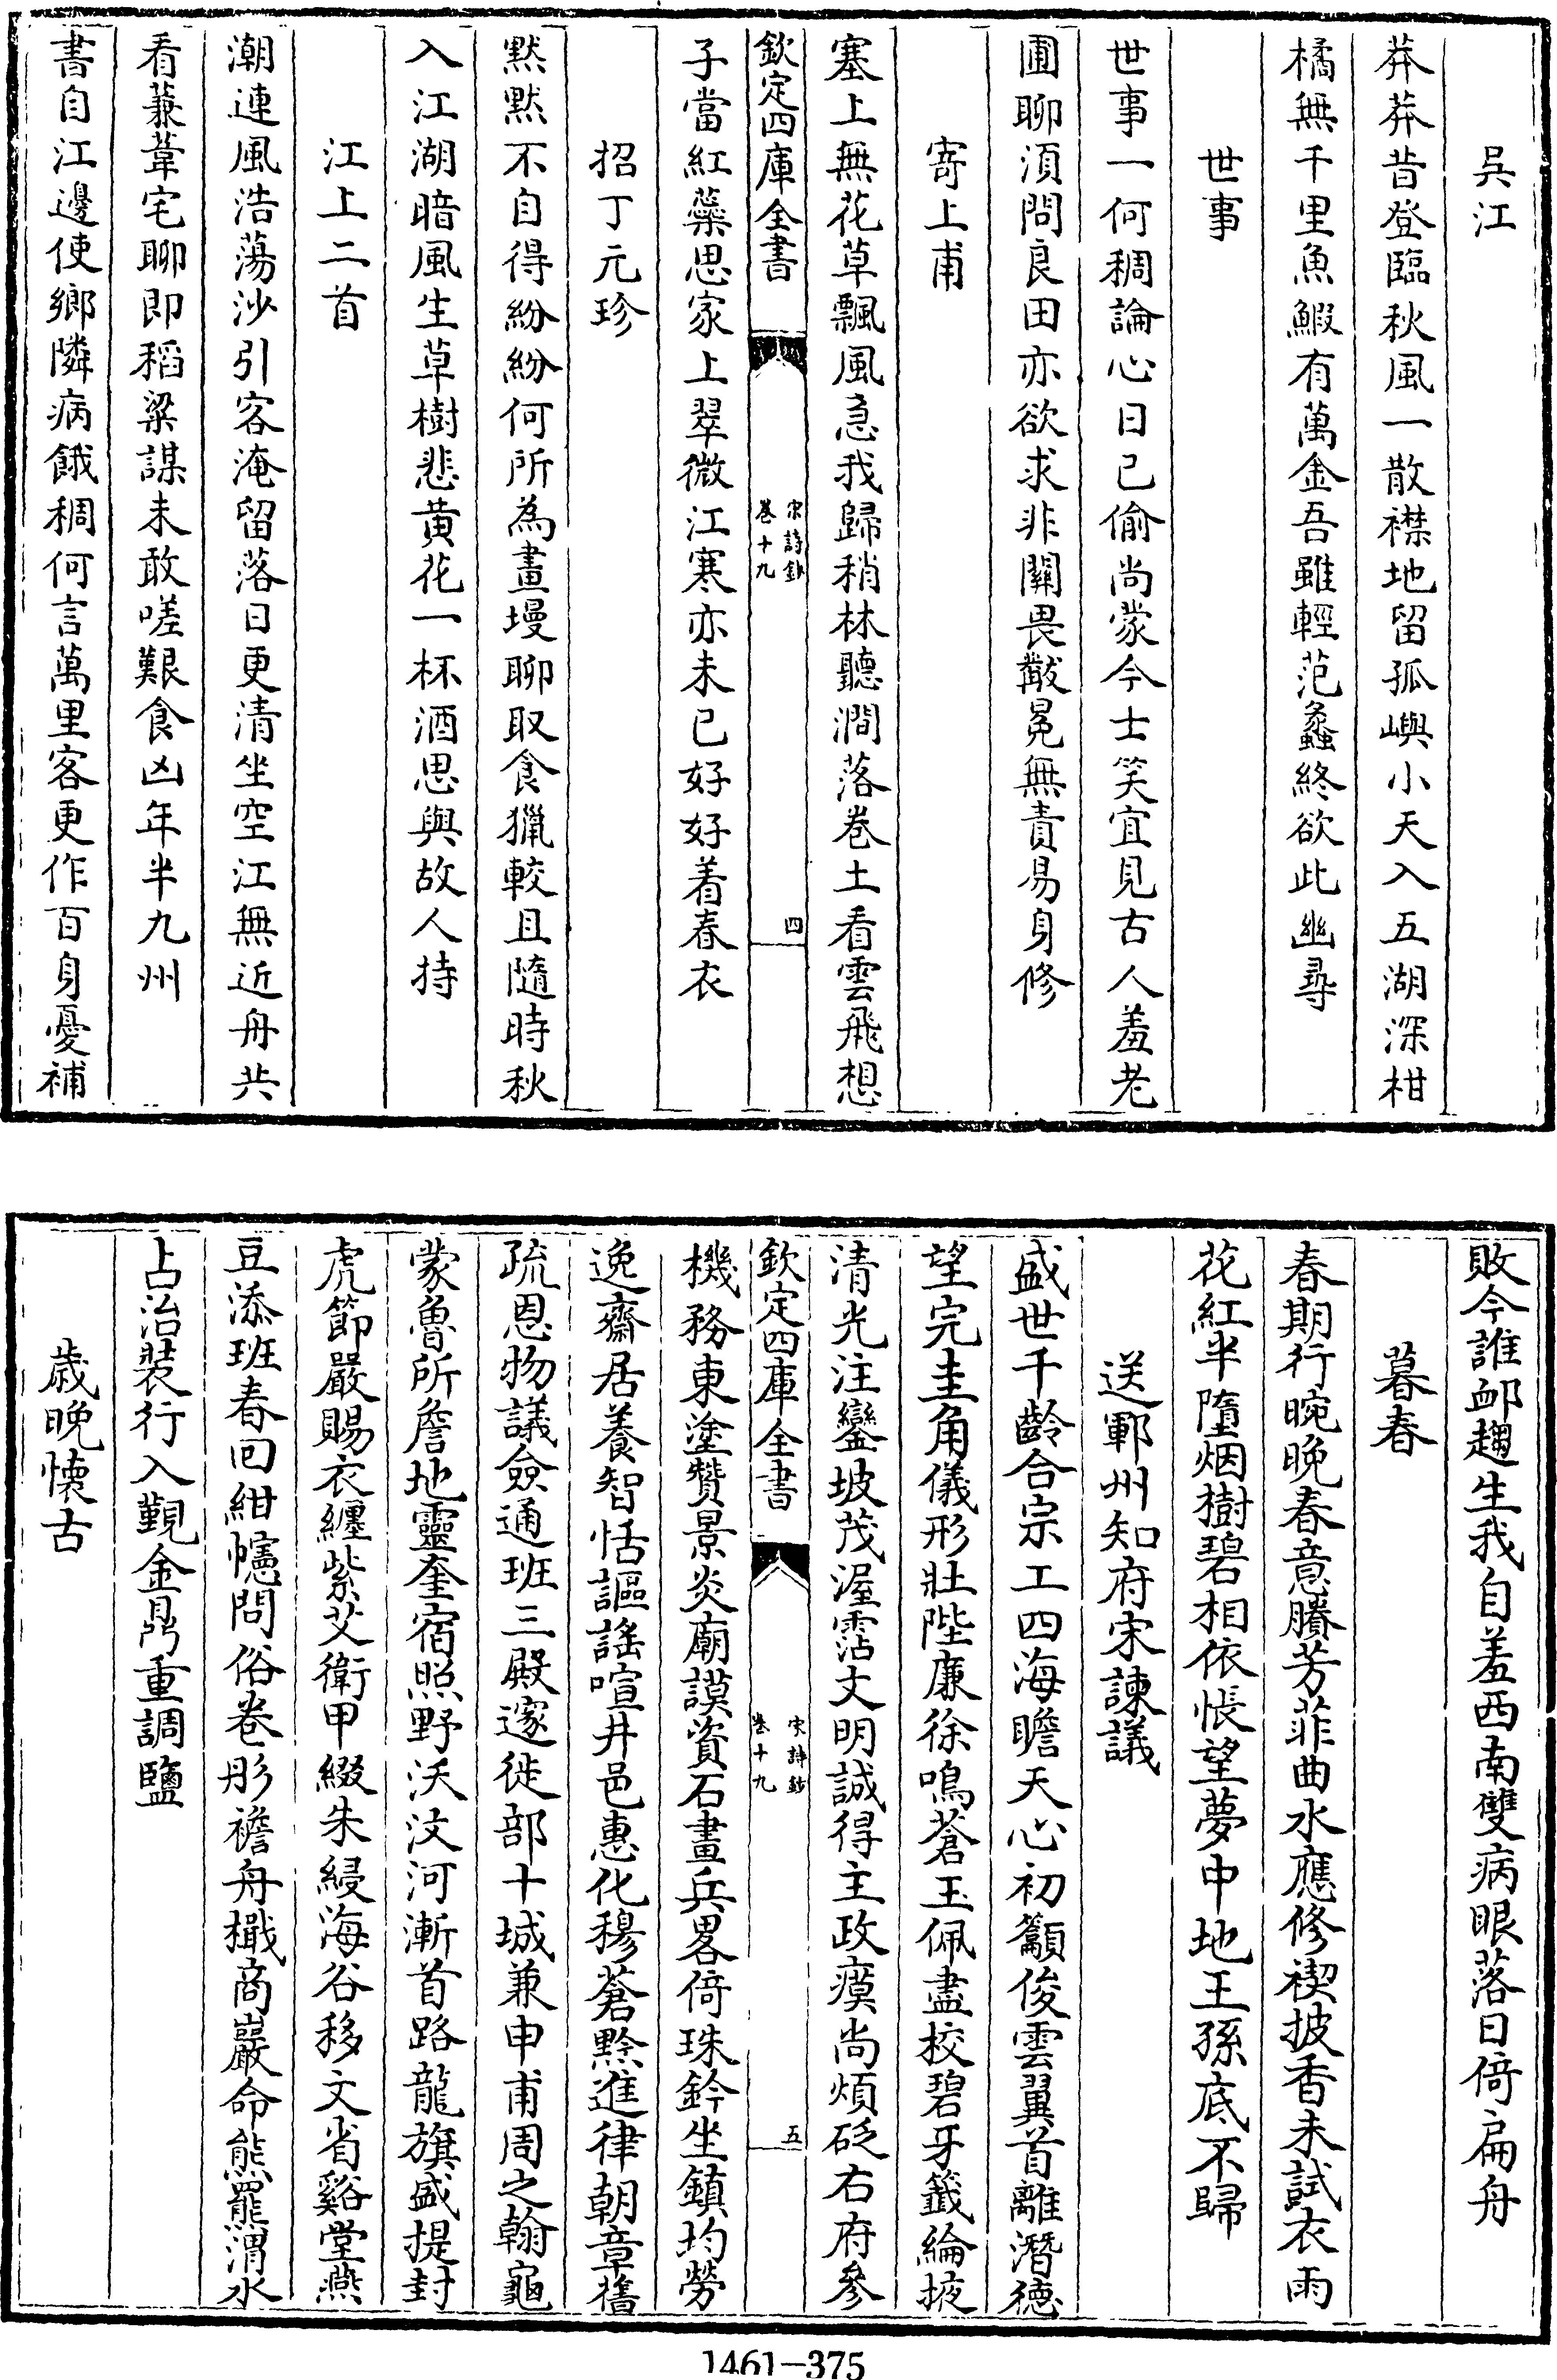 吳江
莽莽昔登臨秋風一散襟地留孤嶼小天入五湖深柑
橘無千里魚鰕有萬金吾雖輕范蠡終欲此幽尋
世事
世事一何稠論心日已偷尚蒙今士笑宜見古人羞老
圃聊須問良田亦欲求非關畏黻冕無責易身修
寄上甫
塞上無花草飄風急我歸稍林聽澗落卷土看雲飛想
欽定四庫全書
宋詩鈔
卷十九
四
子當紅蘂思家上翠微江寒亦未已好好着春衣
招丁元珍
默默不自得紛紛何所為畫墁聊取食獵較且隨時秋
入江湖暗風生草樹悲黃花一杯酒思與故人持
江上二首
潮連風浩蕩沙引客淹留落日更清坐空江無近舟共
看蒹葦宅聊即稻粱謀未敢嗟艱食凶年半九州
書自江邊使鄉隣病餓稠何言萬里客更作百身憂補
敗今誰䘏趨生我自羞西南雙病眼落日倚扁舟
暮春
春期行晼晚春意賸芳菲曲水應修禊披香未試衣雨
花紅半墮烟樹碧相依悵望夢中地王孫底不歸
送鄆州知府宋諫議
盛世千齡合宗工四海瞻天心初籲俊雲翼首離潛德
望完圭角儀形壯陛廉徐鳴蒼玉佩盡校碧牙籖綸掖
清光注鑾坡茂渥霑文明誠得主政瘼尚煩砭右府參
欽定四庫全書
宋詩鈔
卷十九
五
機務東塗贊景炎廟謨資石畫兵畧倚珠鈐坐鎮均勞
逸齋居養智恬謳謠喧井邑惠化穆蒼黔進律朝章舊
疏恩物議僉通班三殿邃徙部十城兼申甫周之翰龜
蒙魯所詹地靈奎宿照野沃汶河漸首路龍旗盛提封
虎節嚴賜衣纏紫艾衛甲綴朱綅海谷移文省谿堂燕
豆添班春回紺幰問俗卷彤襜舟檝商巖命熊羆渭水
占治裝行入覲金鼎重調鹽
歲晚懷古
1461-375